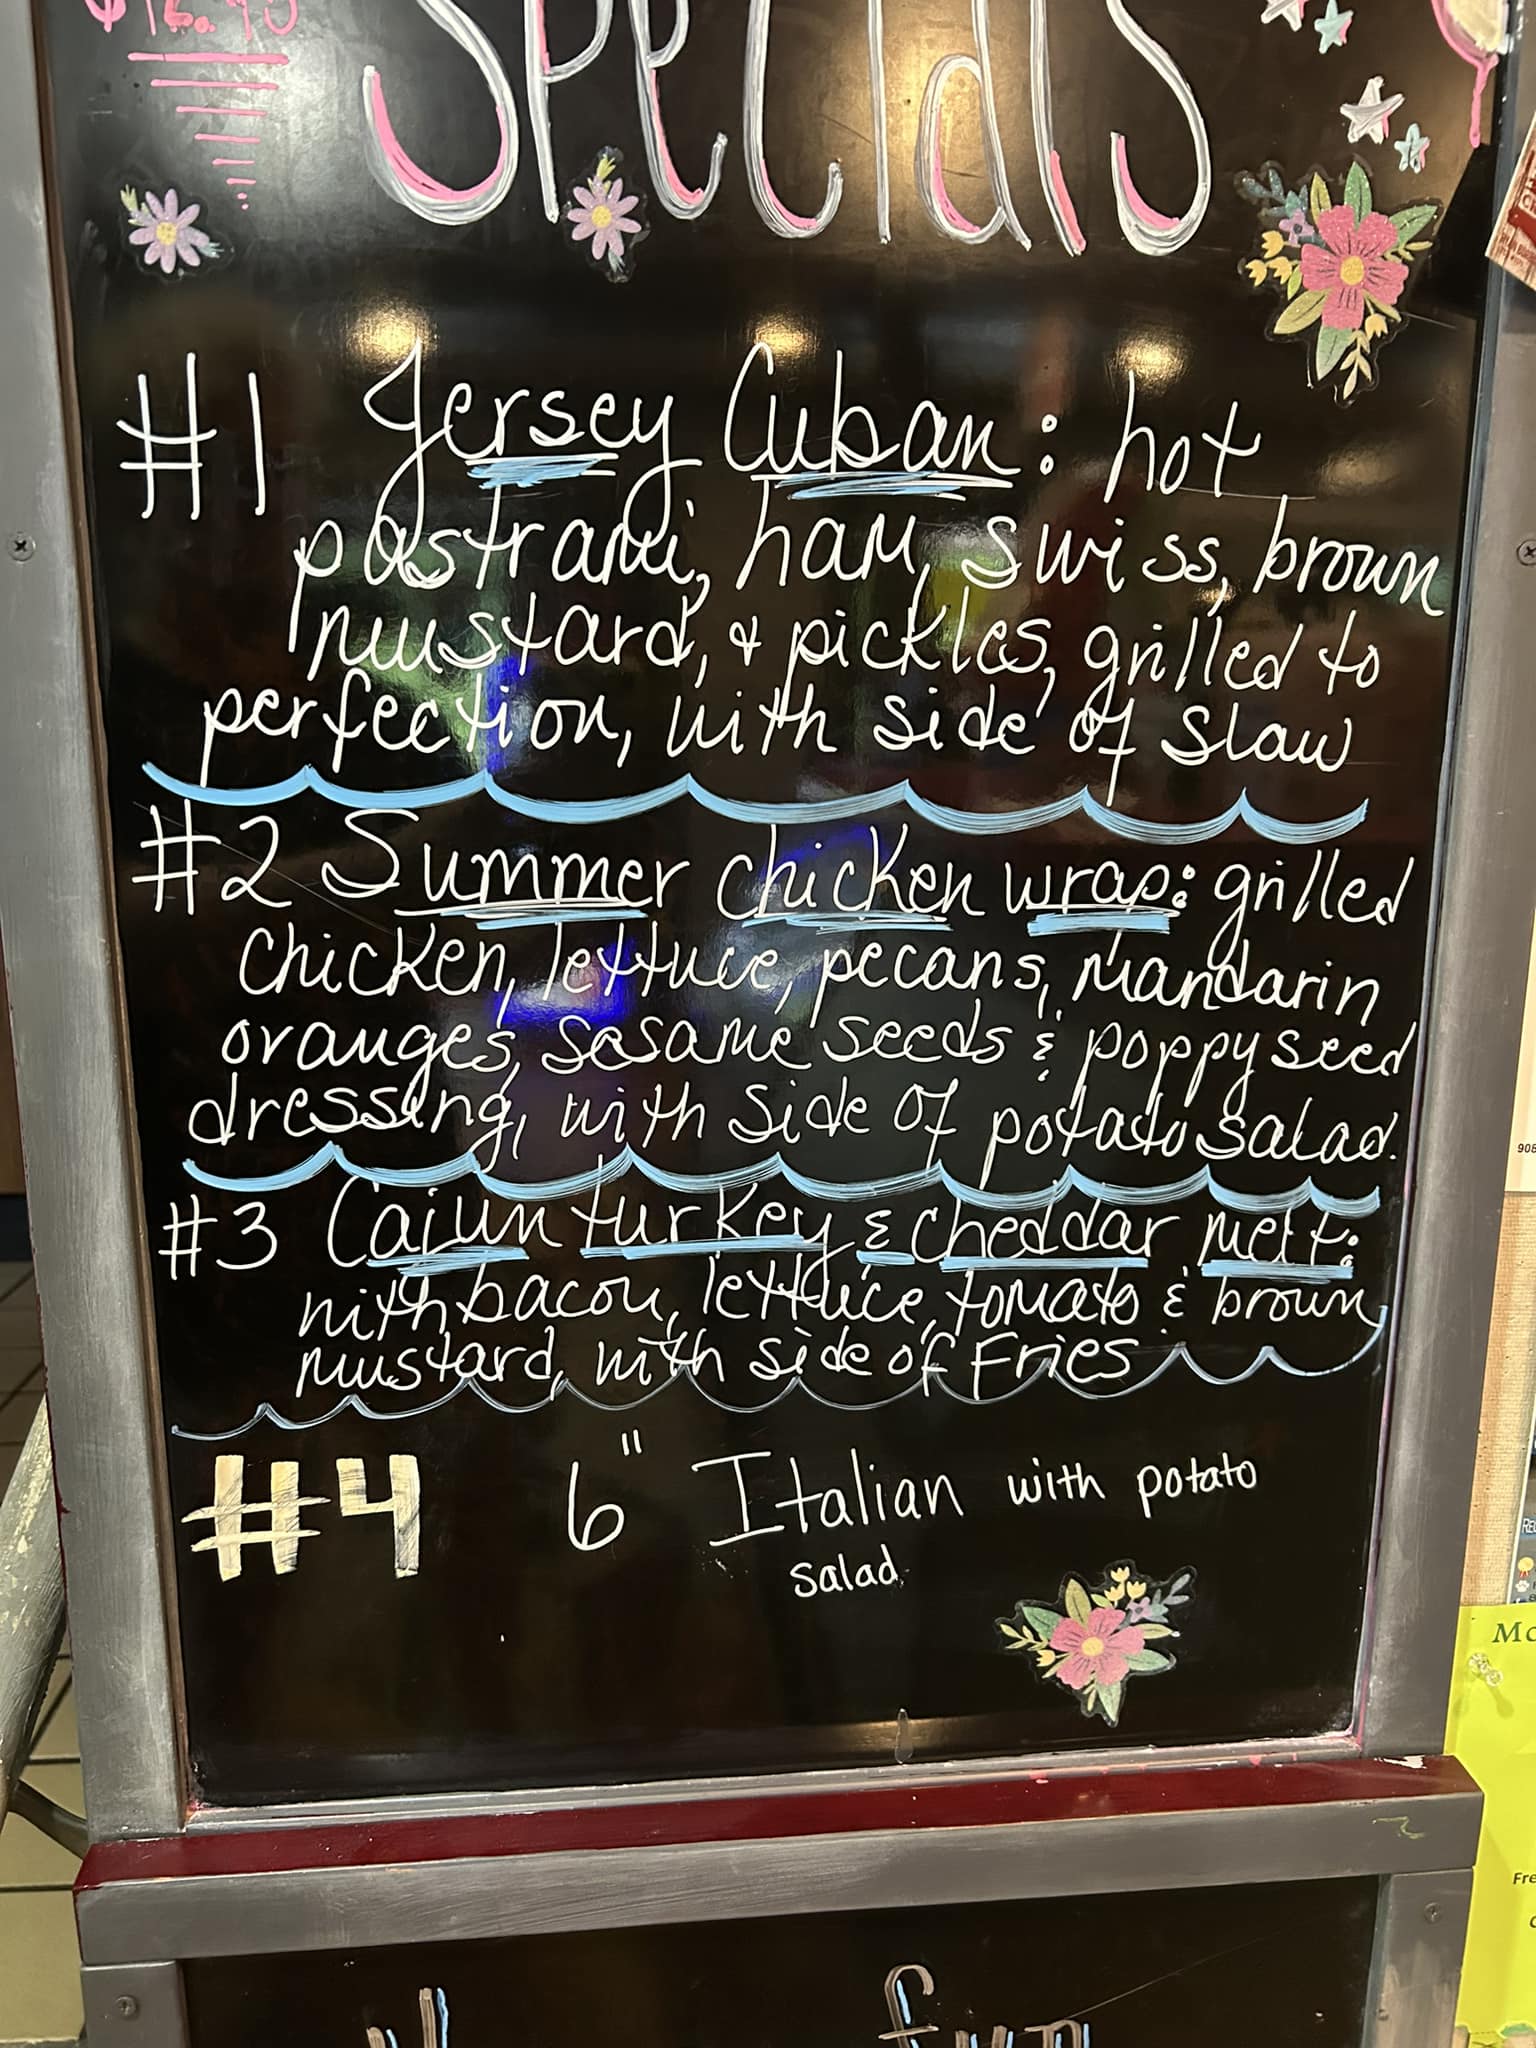 Specials
#1 Jersey Cuban: hot
pastrami, ham, swiss, brown
mustard, & pickles, grilled to
perfection, with side of slaw
#2 Summer chicken wrap: grilled
chicken, lettuce, pecans, mandarin
oranges, sesame seeds & poppyseed
dressing, with side of potato salad.
#3 Cajun turkey & cheddar melt:
with bacon, lettuce, tomato & brown
mustard, with side of Fries
#4 6" Italian with potato
salad
908
Fre